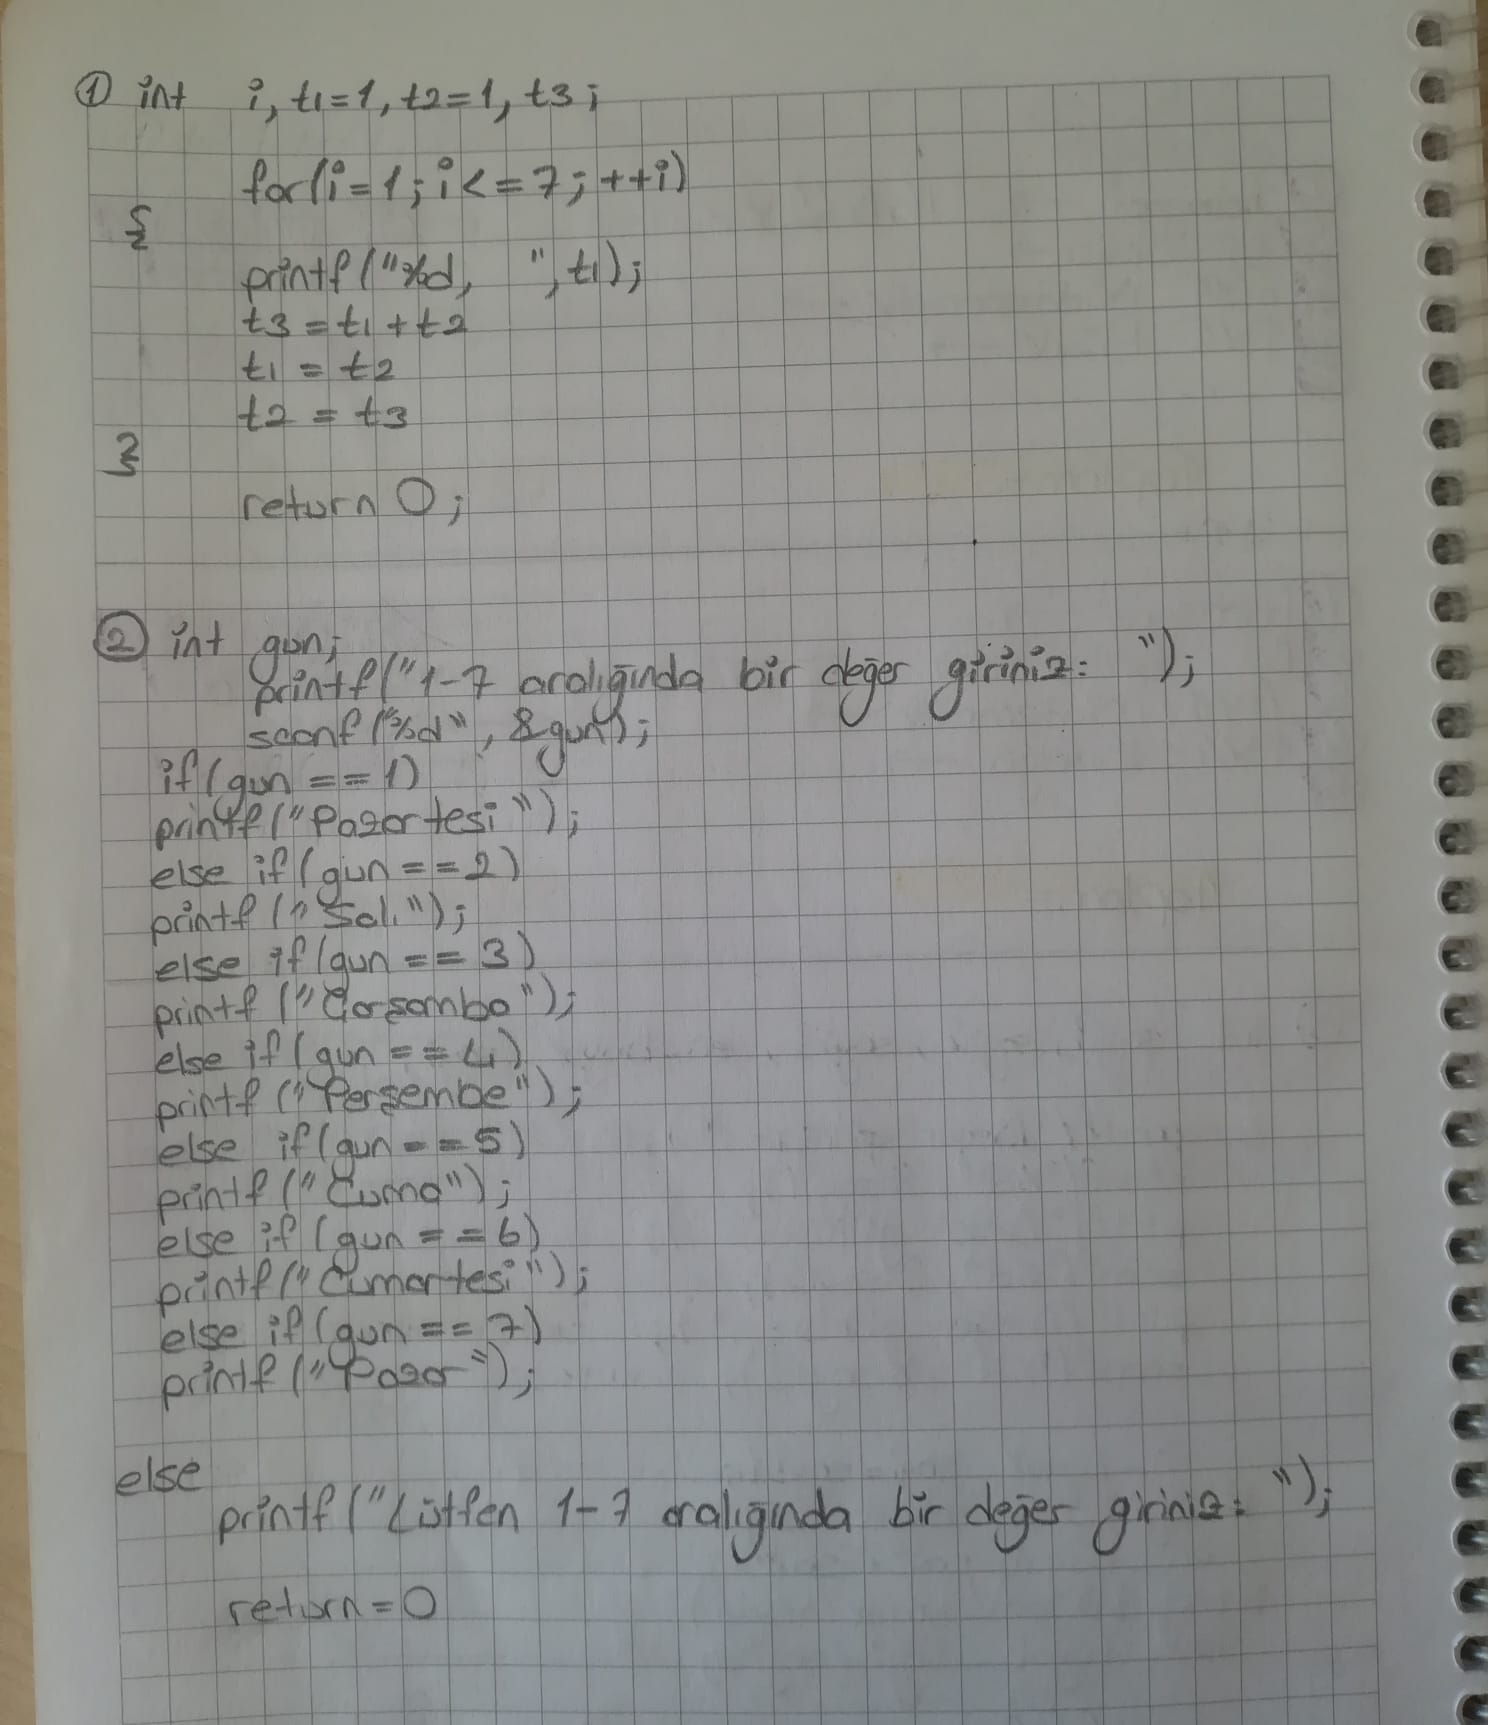 ① int i, t1=1, t2=1, t3;
for(i=1; i<=7; ++i)
{
printf("%d, ", t1);
t3 = t1 + t2
t1 = t2
t2 = t3
}
return 0;
② int gun;
printf("1-7 aralığında bir değer giriniz: ");
scanf("%d", &gun);
if(gun == 1)
printf("Pazartesi");
else if(gun == 2)
printf("Salı");
else if(gun == 3)
printf("Çarşamba");
else if(gun == 4)
printf("Perşembe");
else if(gun == 5)
printf("Cuma");
else if(gun == 6)
printf("Cumartesi");
else if(gun == 7)
printf("Pazar");
else
printf("Lütfen 1-7 aralığında bir değer giriniz: ");
return = 0